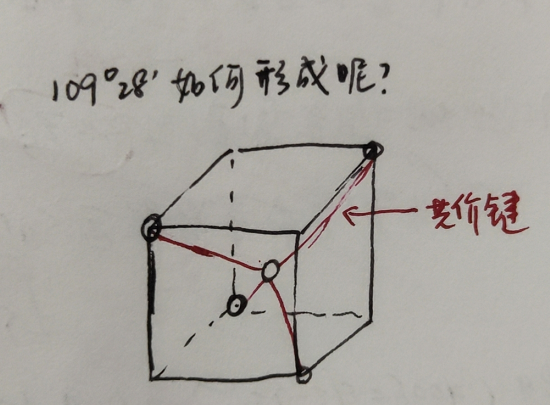 109°28′如何形成呢?
共价键